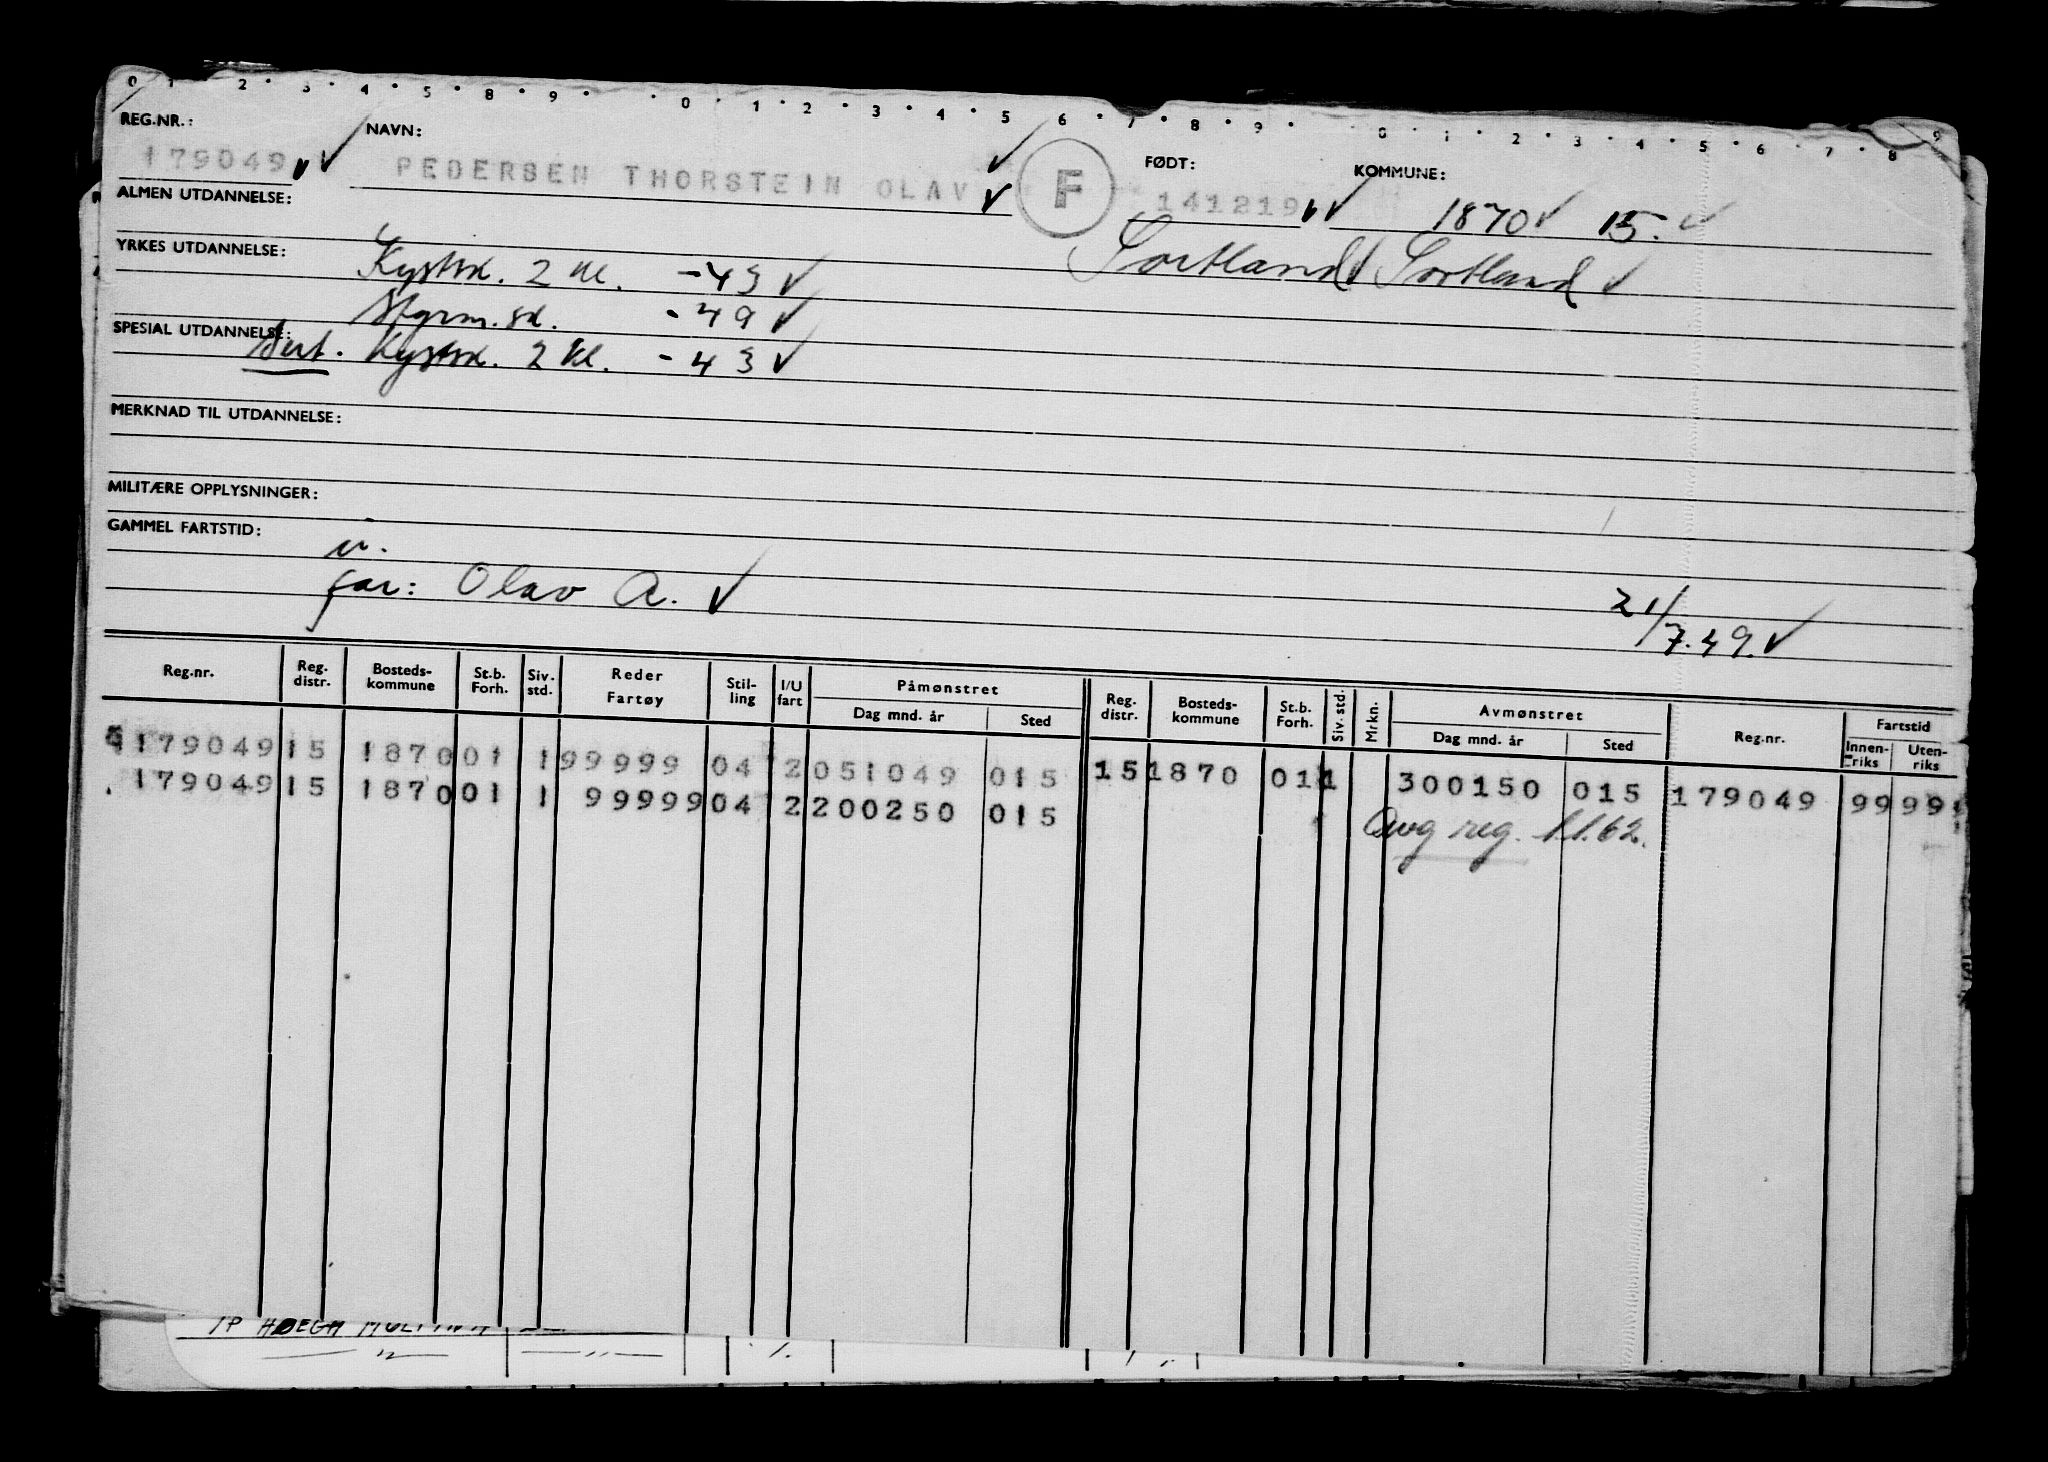 0 1 2 3 4 5 8 9 0 1 2 3 4 5 6 7 8 9 0 1 2 3 4 5 6 7 8 9
REG.NR.: NAVN: FØDT: KOMMUNE:
179049 PEDERSEN THORSTEIN OLAV F 141219 1870 15.
ALMEN UTDANNELSE: Sortland Sortland
YRKES UTDANNELSE: Kystsk. 2 kl. -43
Styrm.sk. -49
SPESIAL UTDANNELSE: Sert. Kystsk. 2 kl. -43
MERKNAD TIL UTDANNELSE:
MILITÆRE OPPLYSNINGER:
GAMMEL FARTSTID:
far: Olav A. 21/7.49.
Reg.nr. Reg. distr. Bosteds-kommune St.b. Forh. Siv. std. Reder Fartøy Stil-ling I/U fart Påmønstret Dag mnd. år Sted Reg. distr. Bosteds-kommune St.b. Forh. Siv. std. Mrkn. Avmønstret Dag mnd. år Sted Reg.nr. Fartstid Innen-riks Uten-riks
179049 15 1870 01 1 99999 04 2 051049 015 15 1870 01 1 300150 015 179049 99 99
179049 15 1870 01 1 99999 04 2 200250 015
Avg reg. 1.1.62.
HØEGH